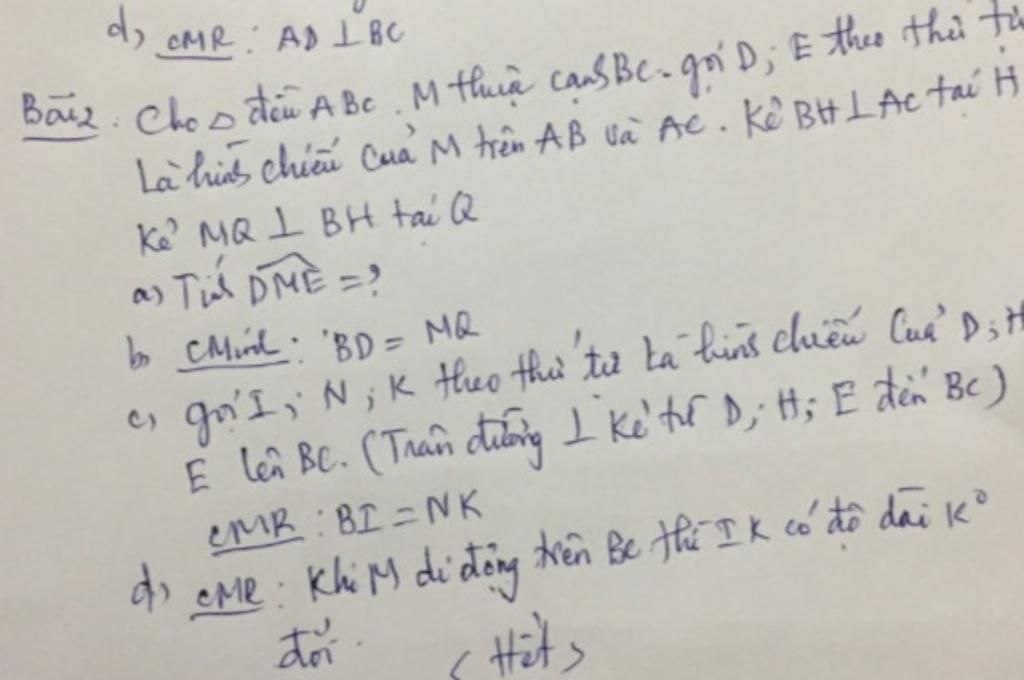 d, CMR: AD ⊥ BC
Bài 2: Cho △ đều ABC. M thuộc cạnh BC. gọi D; E theo thứ tự
Là hình chiếu của M trên AB và AC. Kẻ BH ⊥ AC tại H
Kẻ MQ ⊥ BH tại Q
a) Tính DME = ?
b, CMinh: BD = MQ
c, gọi I; N; K theo thứ tự Là hình chiếu của D; H
E lên BC. (Trên đường ⊥ kẻ từ D; H; E đến BC)
CMR: BI = NK
d, CMR: Khi M di động trên BC thì IK có độ dài K°
đổi.
< Hết >